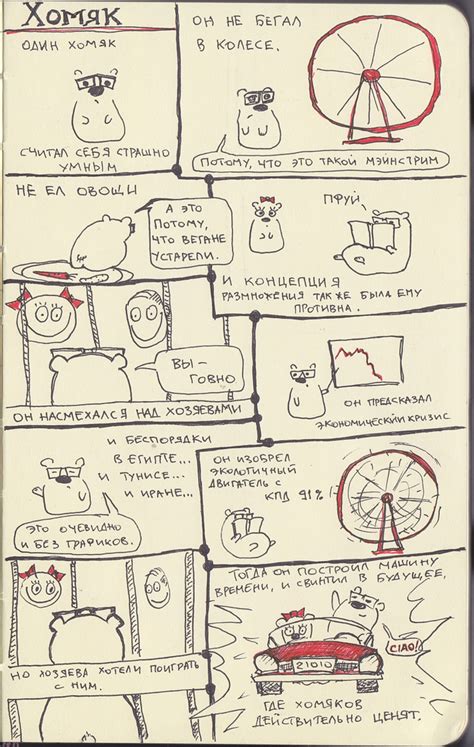 Хомяк
ОДИН ХОМЯК
СЧИТАЛ СЕБЯ СТРАШНО
УМНЫМ
ОН НЕ БЕГАЛ
В КОЛЕСЕ.
ПОТОМУ, ЧТО ЭТО ТАКОЙ МЭЙНСТРИМ
НЕ ЕЛ ОВОЩИ
А ЭТО
ПОТОМУ,
ЧТО ВЕГАНЕ
УСТАРЕЛИ.
ПФУЙ.
И КОНЦЕПЦИЯ
РАЗМНОЖЕНИЯ ТАК ЖЕ БЫЛА ЕМУ
ПРОТИВНА.
ВЫ -
ГОВНО
ОН НАСМЕХАЛСЯ НАД ХОЗЯЕВАМИ
ОН ПРЕДСКАЗАЛ
ЭКОНОМИЧЕСКИЙ КРИЗИС
И БЕСПОРЯДКИ
В ЕГИПТЕ...
И ТУНИСЕ...
И ИРАНЕ...
ЭТО ОЧЕВИДНО
И БЕЗ ГРАФИКОВ.
ОН ИЗОБРЕЛ
ЭКОЛОГИЧНЫЙ
ДВИГАТЕЛЬ С
КПД 91%
НО ХОЗЯЕВА ХОТЕЛИ ПОИГРАТЬ
С НИМ.
ТОГДА ОН ПОСТРОИЛ МАШИНУ
ВРЕМЕНИ, И СВИНТИЛ В БУДУЩЕЕ,
CIAO!
21010
ГДЕ ХОМЯКОВ
ДЕЙСТВИТЕЛЬНО ЦЕНЯТ.